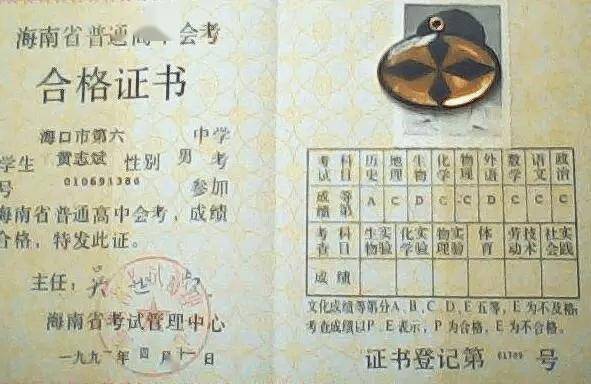 海南省普通高中会考
合格证书
海口市第六 中学
学生 黄志斌 性别 男 考
号 010691386 参加
海南省普通高中会考，成绩
合格，特发此证。
主任：
海南省考试管理中心
一九九 年 四 月 十一 日
考试科目 历史 地理 生物 化学 物理 外语 数学 语文 政治
成绩等第 A C D C D C
考查科目 生物实验 化学实验 物理实验 体育 劳动技术 社会实践
成绩
文化成绩等第分A、B、C、D、E五等，E为不及格；
考查成绩以P、E表示，P为合格，E为不合格。
证书登记第 01789 号